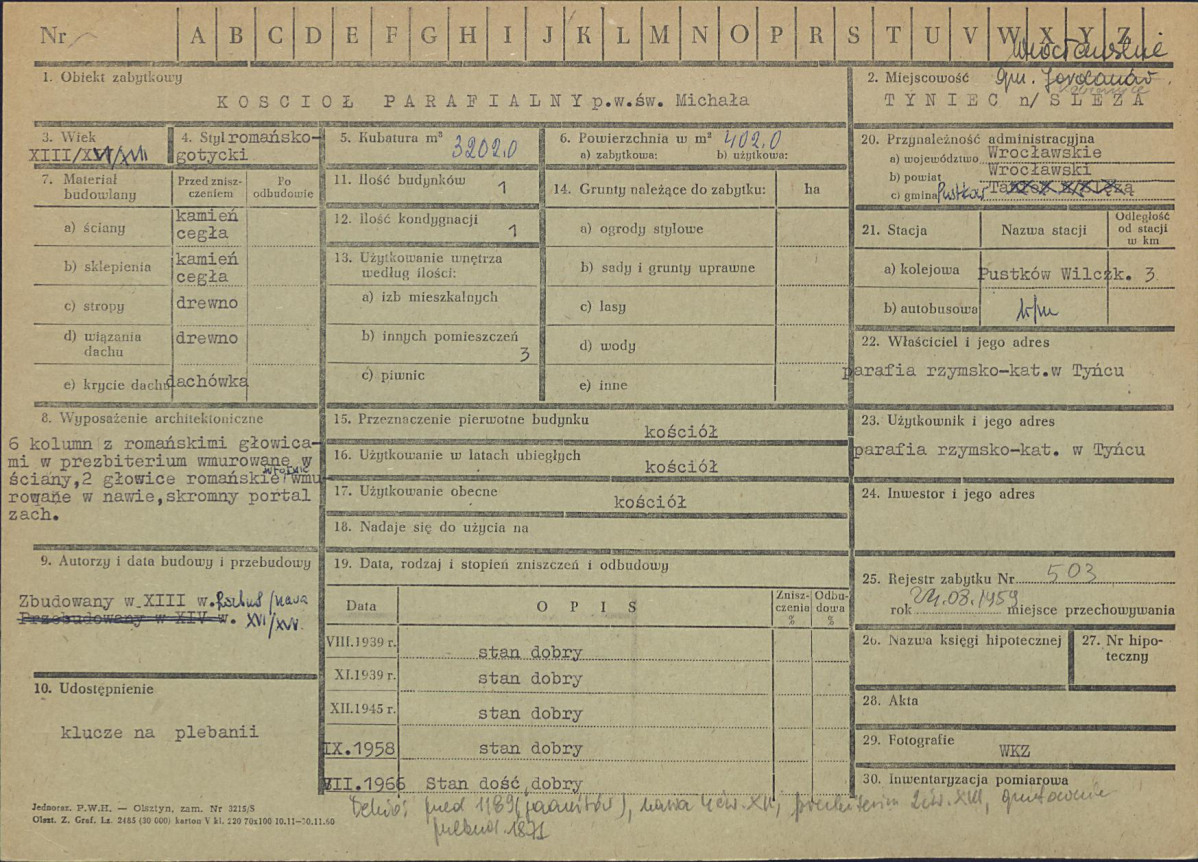 Nr A B C D E F G H I J K L M N O P R S T U V W X Y Z
1. Obiekt zabytkowy
KOSCIOŁ PARAFIALNY p.w.św. Michała
2. Miejscowość gm. Jordanów
TYNIEC n/SLEZA
3. Wiek
XIII/XVI/XVII
4. Styl romańsko-
gotycki
5. Kubatura m³ 3202,0
6. Powierzchnia w m² 402,0
a) zabytkowa: b) użytkowa:
20. Przynależność administracyjna
a) województwo Wrocławskie
b) powiat Wrocławski
c) gmina Pustków
7. Materiał
budowlany
Przed znisz-
czeniem
Po
odbudowie
a) ściany kamień
cegła
b) sklepienia kamień
cegła
c) stropy drewno
d) wiązania
dachu drewno
e) krycie dachu dachówka
11. Ilość budynków 1
12. Ilość kondygnacji 1
13. Użytkowanie wnętrza
według ilości:
a) izb mieszkalnych
b) innych pomieszczeń 3
c) piwnic
14. Grunty należące do zabytku: ha
a) ogrody stylowe
b) sady i grunty uprawne
c) lasy
d) wody
e) inne
21. Stacja Nazwa stacji Odległość
od stacji
w km
a) kolejowa Pustków Wilczk. 3
b) autobusowa
22. Właściciel i jego adres
parafia rzymsko-kat.w Tyńcu
8. Wyposażenie architektoniczne
6 kolumn z romańskimi głowica-
mi w prezbiterium wmurowane w
ściany,2 głowice romańskie wmu
rowane w nawie,skromny portal
zach.
15. Przeznaczenie pierwotne budynku
kościół
16. Użytkowanie w latach ubiegłych
kościół
17. Użytkowanie obecne
kościół
18. Nadaje się do użycia na
23. Użytkownik i jego adres
parafia rzymsko-kat. w Tyńcu
24. Inwestor i jego adres
9. Autorzy i data budowy i przebudowy
Zbudowany w XIII w. /nawa
Przebudowany w XIV w. XVI/XVII
10. Udostępnienie
klucze na plebanii
19. Data, rodzaj i stopień zniszczeń i odbudowy
Data OPIS Znisz-
czenia
% Odbu-
dowa
%
VIII.1939 r. stan dobry
XI.1939 r. stan dobry
XII.1945 r. stan dobry
IX.1958 stan dobry
VII.1966 Stan dość dobry
25. Rejestr zabytku Nr 503
rok 24.08.1959 miejsce przechowywania
26. Nazwa księgi hipotecznej
27. Nr hipo-
teczny
28. Akta
29. Fotografie
WKZ
30. Inwentaryzacja pomiarowa
Jednoraz. P.W.H. — Olsztyn, zam. Nr 3215/S
Olszt. Z. Graf. Lz. 2485 (30 000) karton V kl. 220 70x100 10.11—30.11.60
przed 1189 (joannitów), nawa 4 ćw. XV, prezbiterium 2 ćw. XIII, gruntownie
1871